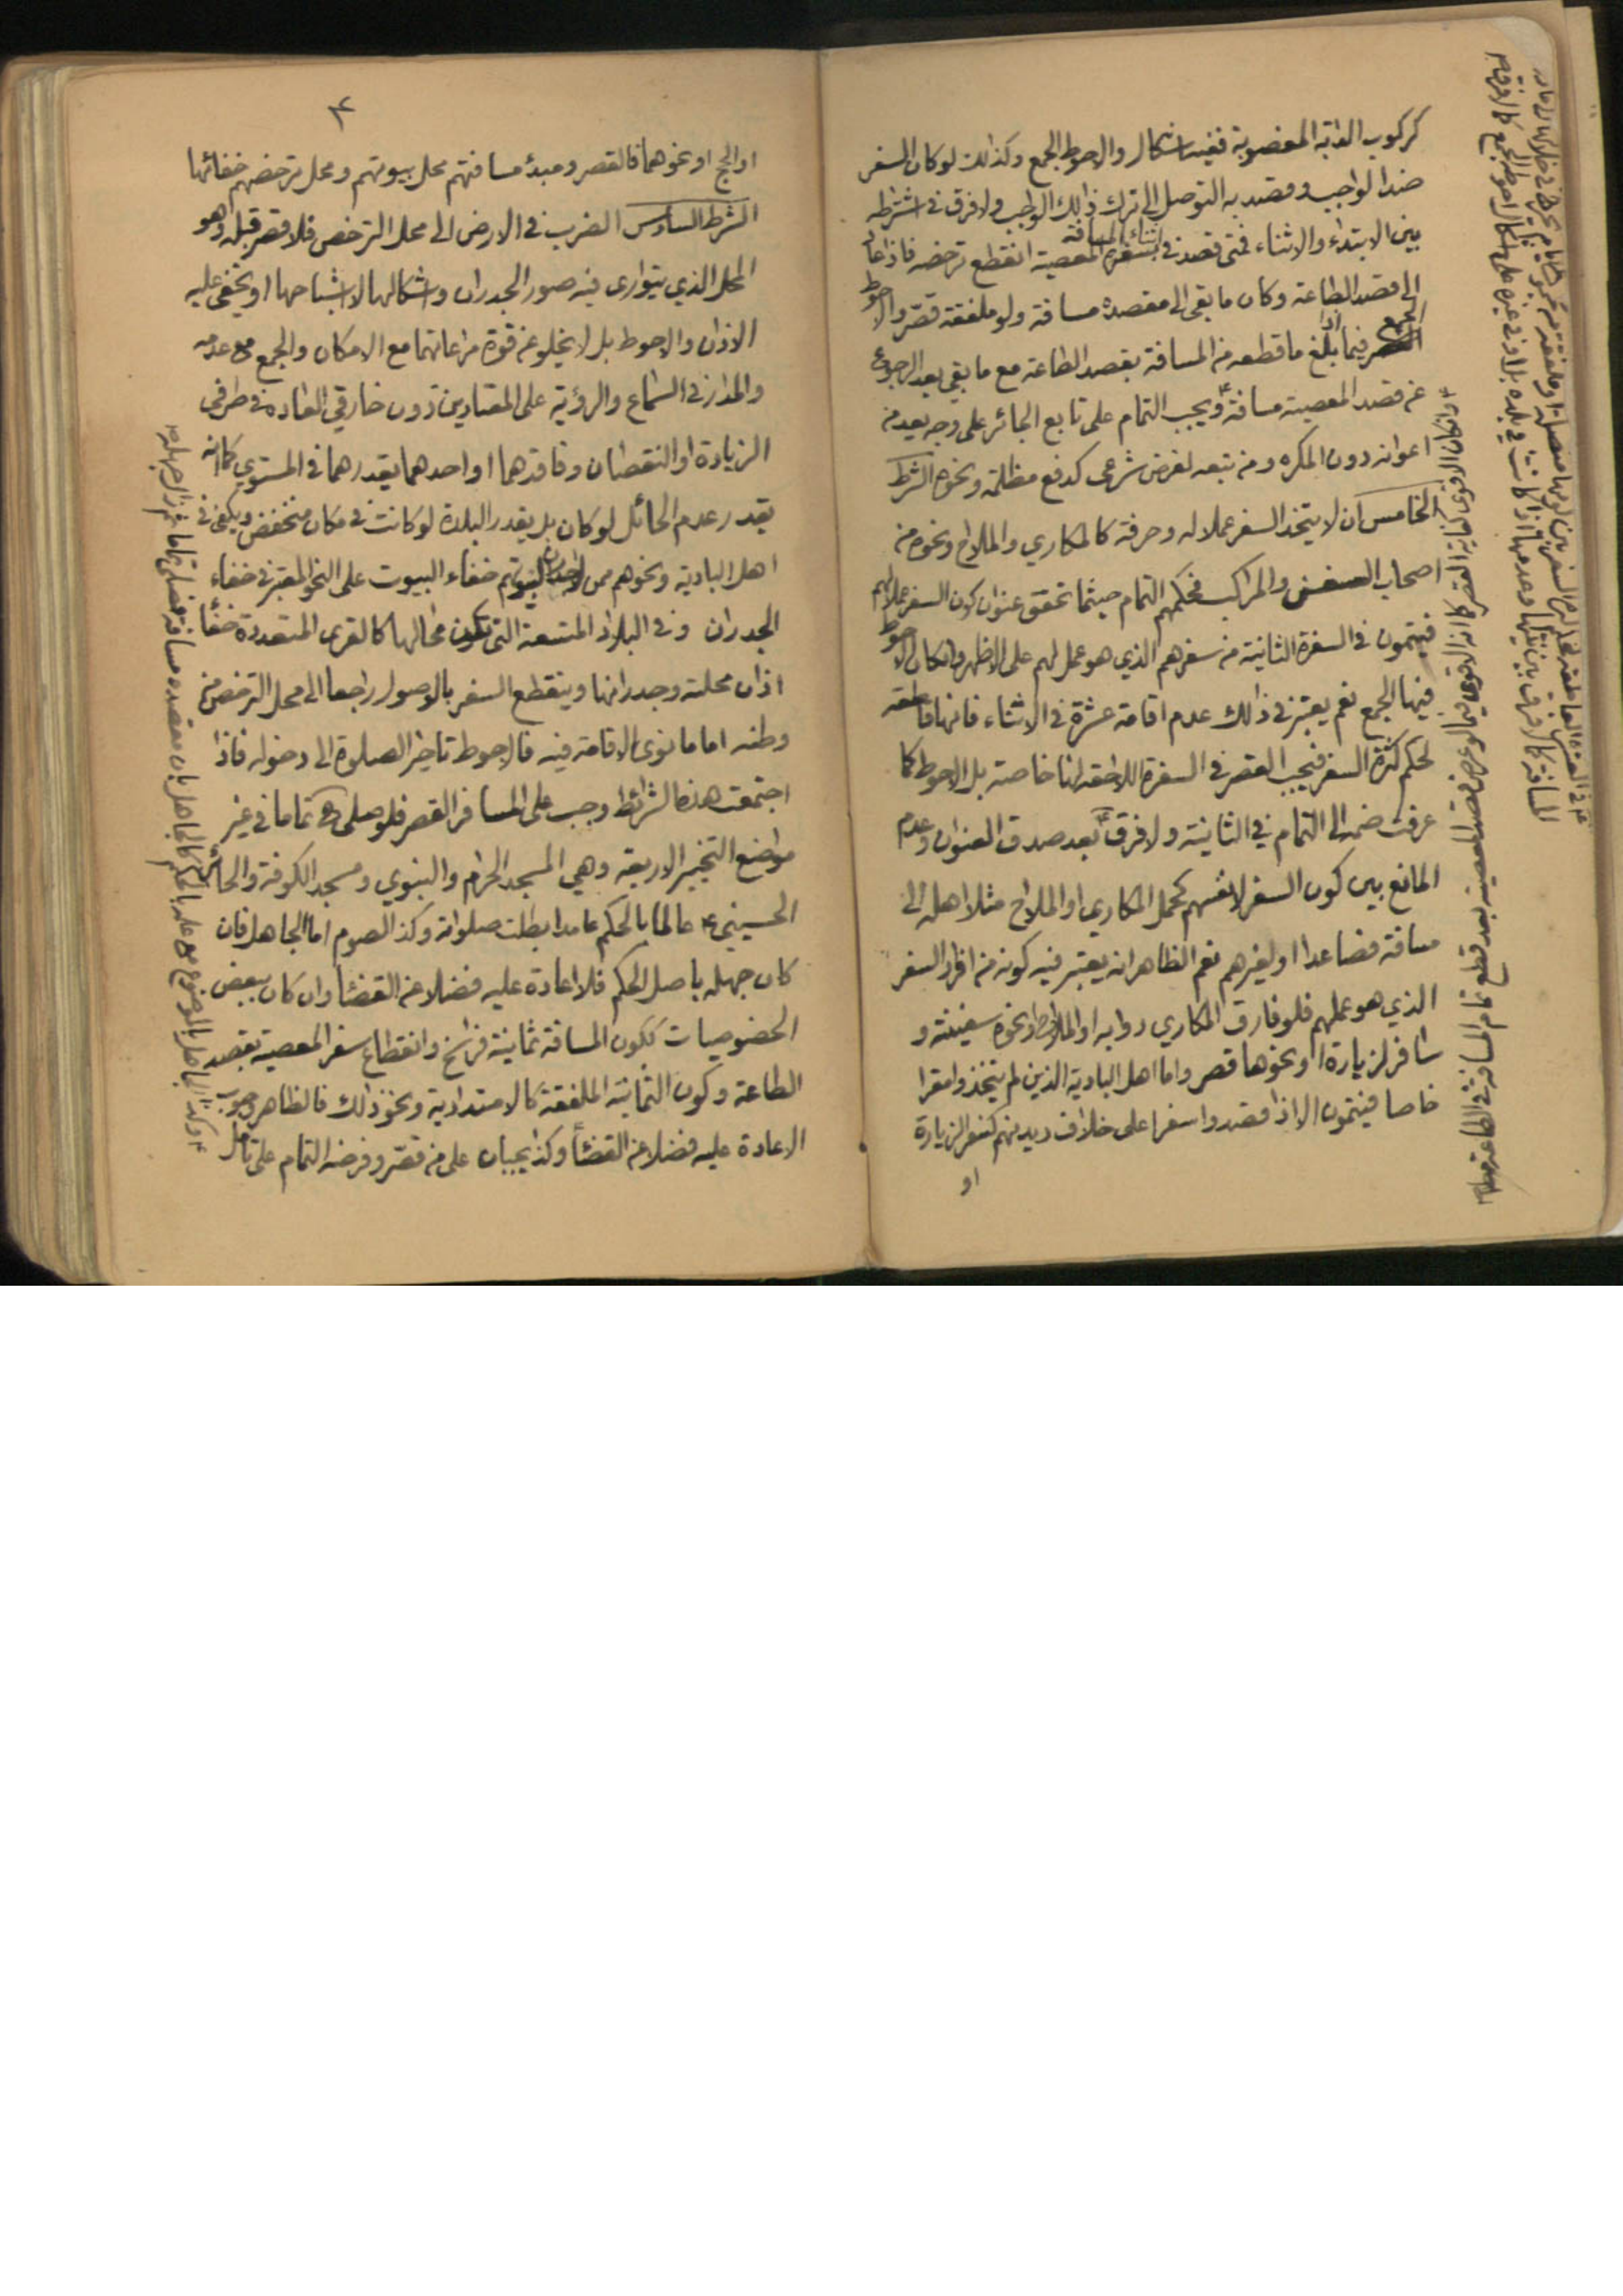 كركوب الدابة المغصوبة ففيه اشكال والاحوط الجمع وكذالك لو كان السفر
ضدا لواجب وقصد به التوصل الى ترك ذالك الواجب ولا فرق في اشتراطه
بين الابتداء والاثناء فمتى قصد في اثناء المسافة بسفره المعصية انقطع ترخصه فاذا عاد
الى قصد الطاعة وكان ما بقي الى مقصده مسافة ولو ملفقة قصّر والاحوط
الجمع فيما اذا بلغ ما قطعه من المسافة بقصد الطاعة مع ما بقي بعد الرجوع
عن قصد المعصية مسافة ويجب التمام على تابع الجائر على وجه يعد من
اعوانه دون المكره ومن تبعه لغرض شرعي كدفع مظلمة ونحوه الشرط
الخامس ان لا يتخذ السفر عملا له وحرفة كالمكاري والملاح ونحوه من
اصحاب السفن والمراكب فحكمهم التمام حيثما تحقق عنوان كون السفر عملا لهم
فيتمون في السفرة الثانية من سفرهم الذي هو عمل لهم على الاظهر وان كان الاحوط
فيها الجمع نعم يعتبر في ذالك عدم اقامة عشرة في الاثناء فانها قاطعة
لحكم كثرة السفر فيجب القصر في السفرة اللاحقة لها خاصة بل الاحوط كما
عرفت ضمه الى التمام في الثانية ولا فرق بعد صدق العنوان وعدم
المانع بين كون السفر لانفسهم كحمل المكاري او الملاح مثلا اهله الى
مسافة فصاعدا او لغيرهم نعم الظاهر انه يعتبر فيه كونه من افراد السفر
الذي هو عملهم فلو فارق المكاري دوابه او الملاح ونحوه سفينته و
سافر لزيارة او نحوها قصر واما اهل البادية الذين لم يتخذوا مقرا
خاصا فيتمون الا اذا قصدوا سفرا على خلاف ديدنهم كسفر الزيارة
او
او الحج او نحوهما فالقصر ومبدء مسافتهم محل بيوتهم ومحل ترخصهم خفائها
الشرط السادس الضرب في الارض الى محل الترخص فلا قصر قبله وهو
المحل الذي يتوارى فيه صور الجدران واشكالها لا اشباحها او يخفى عليه
الاذان والاحوط بل لا يخلو عن قوة مراعاتهما مع الامكان والجمع مع عدمه
والمدار في السماع والرؤية على المعتادين دون خارقي العادة في طرفي
الزيادة او النقصان وفاقدهما او احدهما يقدرهما في المستوي كما انه
يقدر عدم الحائل لو كان بل يقدر البلدة لو كانت في مكان منخفض ويكفي في
اهل البادية ونحوهم ممن لا جدران لبيوتهم خفاء البيوت على النحو المعتبر في خفاء
الجدران وفي البلاد المتسعة التي تكون محالها كالقرى المتعددة خفاء
اذان محلته وجدرانها وينقطع السفر بالوصول راجعا الى محل الترخص من
وطنه اما ما نوى الاقامة فيه فالاحوط تاخير الصلوة الى دخوله فاذا
اجتمعت هذه الشرائط وجب على المسافر القصر فلو صلى تماما في غير
مواضع التخيير الاربعة وهي المسجد الحرام والنبوي ومسجد الكوفة والحائر
الحسيني ع عالما بالحكم عامدا بطلت صلواته وكذا الصوم اما الجاهل فان
كان جهله باصل الحكم فلا اعادة عليه فضلا عن القضاء وان كان ببعض
الخصوصيات ككون المسافة ثمانية فراسخ وانقطاع سفر المعصية بقصد
الطاعة وكون الثمانية الملفقة كالامتدادية ونحو ذالك فالظاهر وجوب
الاعادة عليه فضلا عن القضاء وكذا يجبان على من قصّر وفرضه التمام على تامل